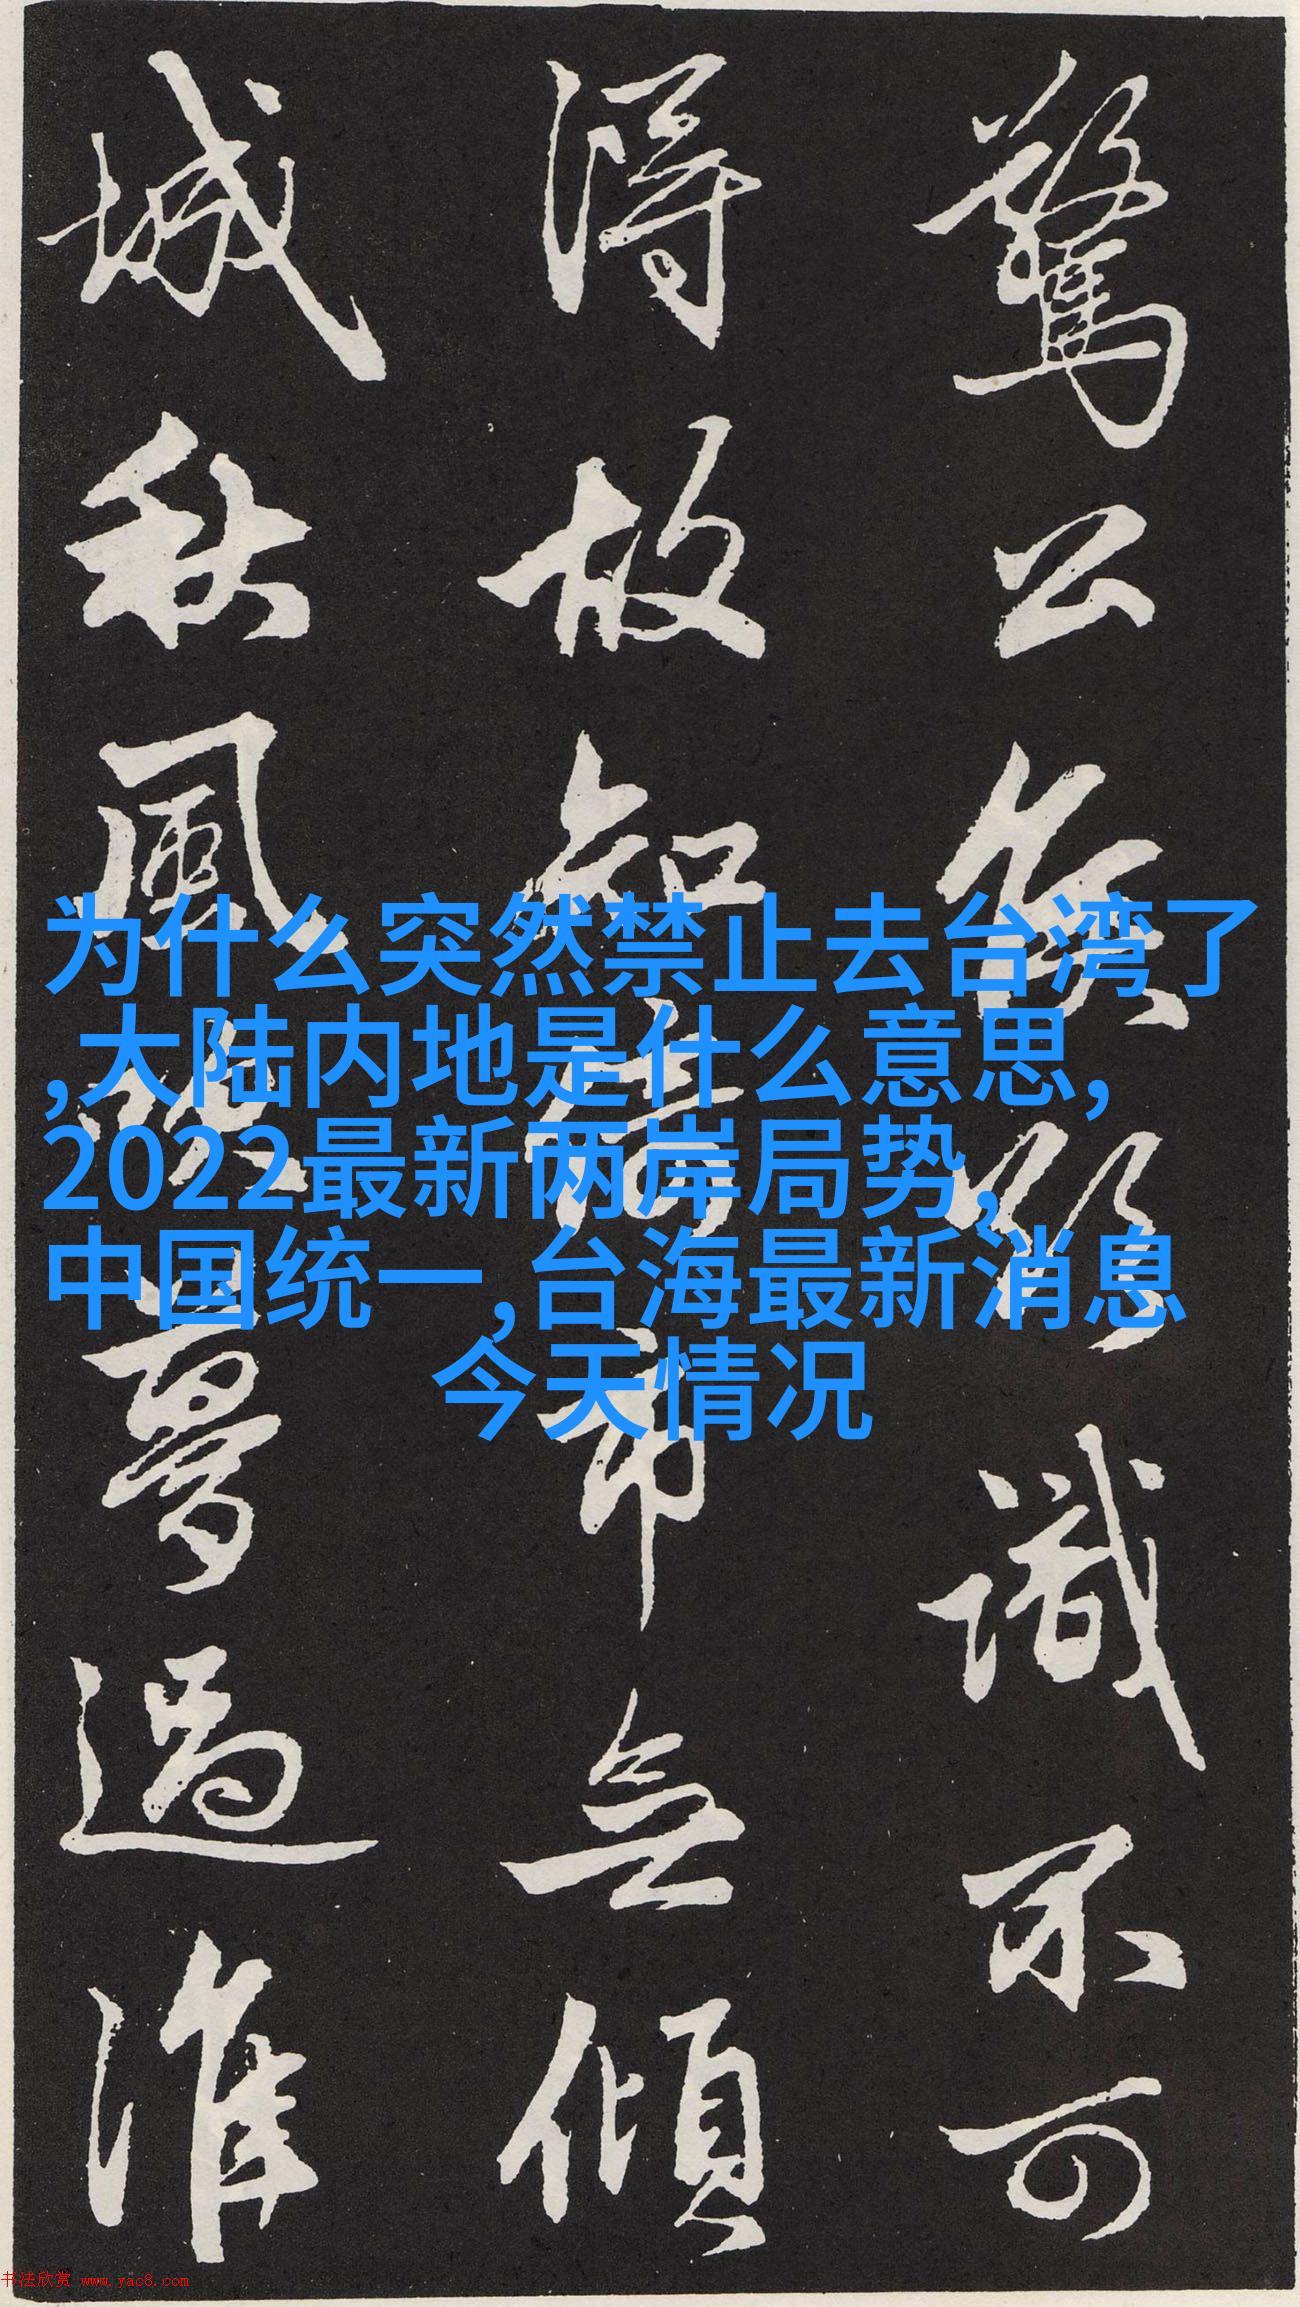 驚公侯欲識不可
得故知倚市無傾
城秋風吹夢過淮
为什么突然禁止去台湾了
,大陆内地是什么意思,
2022最新两岸局势,
中国统一,台海最新消息
今天情况
书法欣赏 www.yac8.com